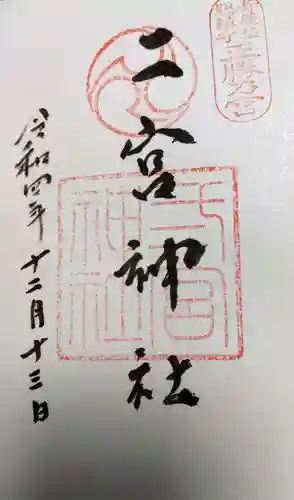 二宮神社
二宮
神社
令和四年十二月十三日